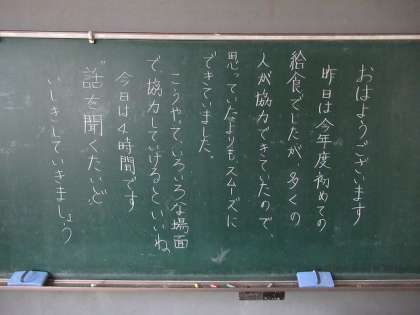 おはようございます
昨日は今年度初めての
給食でしたが、多くの
人が協力できていたので、
思っていたよりもスムーズに
できていました。
こうやって、いろいろな場面
で、協力していけるといいね。
今日は4時間です
"話を聞くたいど"
いしきしていきましょう